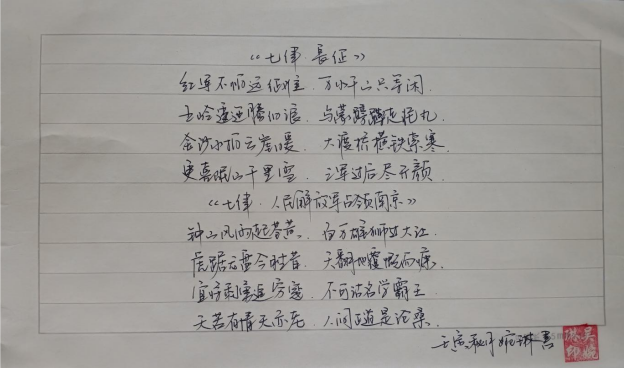 《七律 長征》
红军不怕远征难 万水千山只等闲
五岭逶迤腾细浪 乌蒙磅礴走泥丸
金沙水拍云崖暖 大渡桥横铁索寒
更喜岷山千里雪 三军过后尽开颜
《七律 人民解放军占领南京》
钟山风雨起苍黄 百万雄师过大江
虎踞龙盘今胜昔 天翻地覆慨而慷
宜将剩勇追穷寇 不可沽名学霸王
天若有情天亦老 人间正道是沧桑
秋月婉琳書